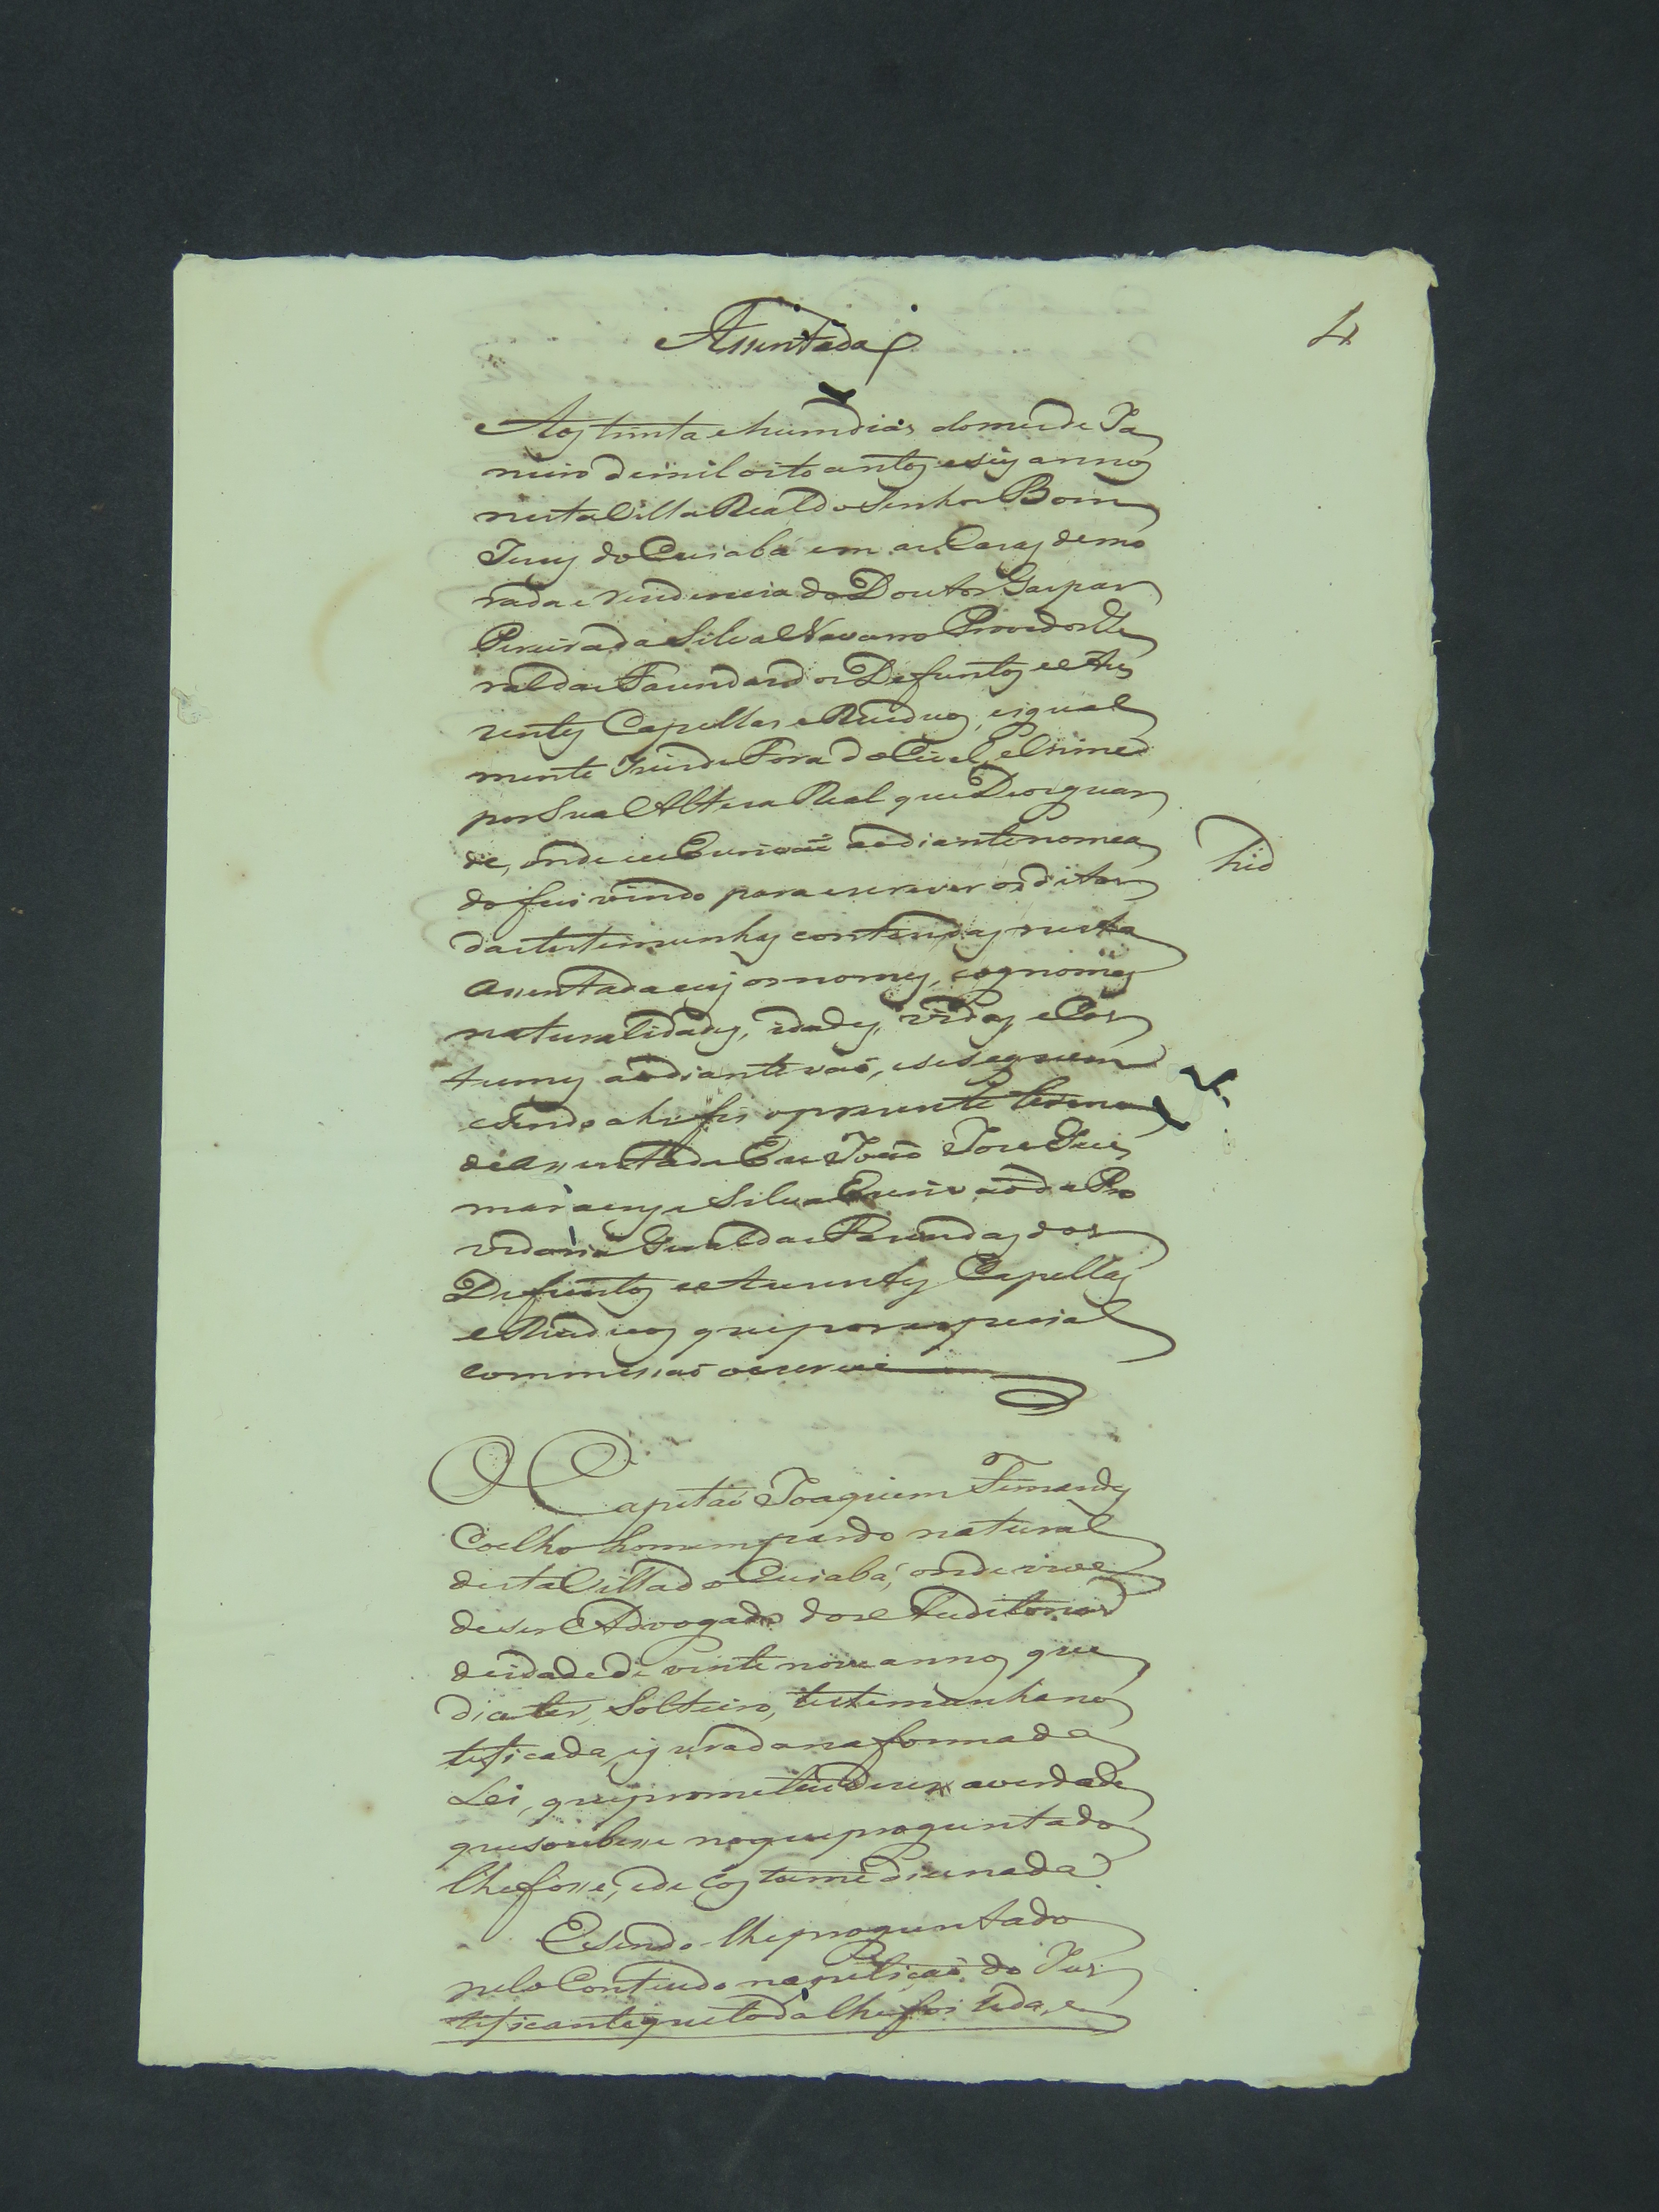 Assentada
4
Aos trinta e hum dias do mes de Ja
neiro de mil oito centos e seis annos
nesta Villa Real do Senhor Bom
Jesus do Cuiabá em as Cazas de mo
rada e rezidencia do Doutor Gaspar
Pereira da Silva Navarro Provedor Ge
ral das Fazendas dos Defuntos e Au
zentes Capellas e Reziduos, e igual
mente Juis de Fora do Civel, e Crime
por Sua Alteza Real que Deos guar
de, onde eu Escrivaõ ao diante nomea
do fui vindo para escrever os ditos
das testemunhas contendas nesta
assentada cujos nomes, cognomes
naturalidades, idades, vidas, e Cos
tumes ao diante vaõ, e se seguem
e sendo ahi fis o prezente termo
de assentada Eu João Joze Gui
maraens e Silva Escrivaõ da Pro
vedoria Geral das Fazendas dos
Defuntos e Auzentes Capellas
e Reziduos que por especial
commissaõ o escrevi
O Capitaõ Joaquim Fernandes
Coelho homem pardo natural
desta Villa do Cuiabá, onde vive
de ser Advogado dos Auditorios
de idade de vinte nove annos que
disse ter, Solteiro, testemunha no
teficada, e jurada na forma da
Lei, que prometeu dizer a verdade
que soubesse no que preguntado
lhe fosse, e de Costume disse nada
E sendo-lhe preguntado
pelo Contiudo na petiçaõ do Jus
teficante que toda lhe foi lida, e